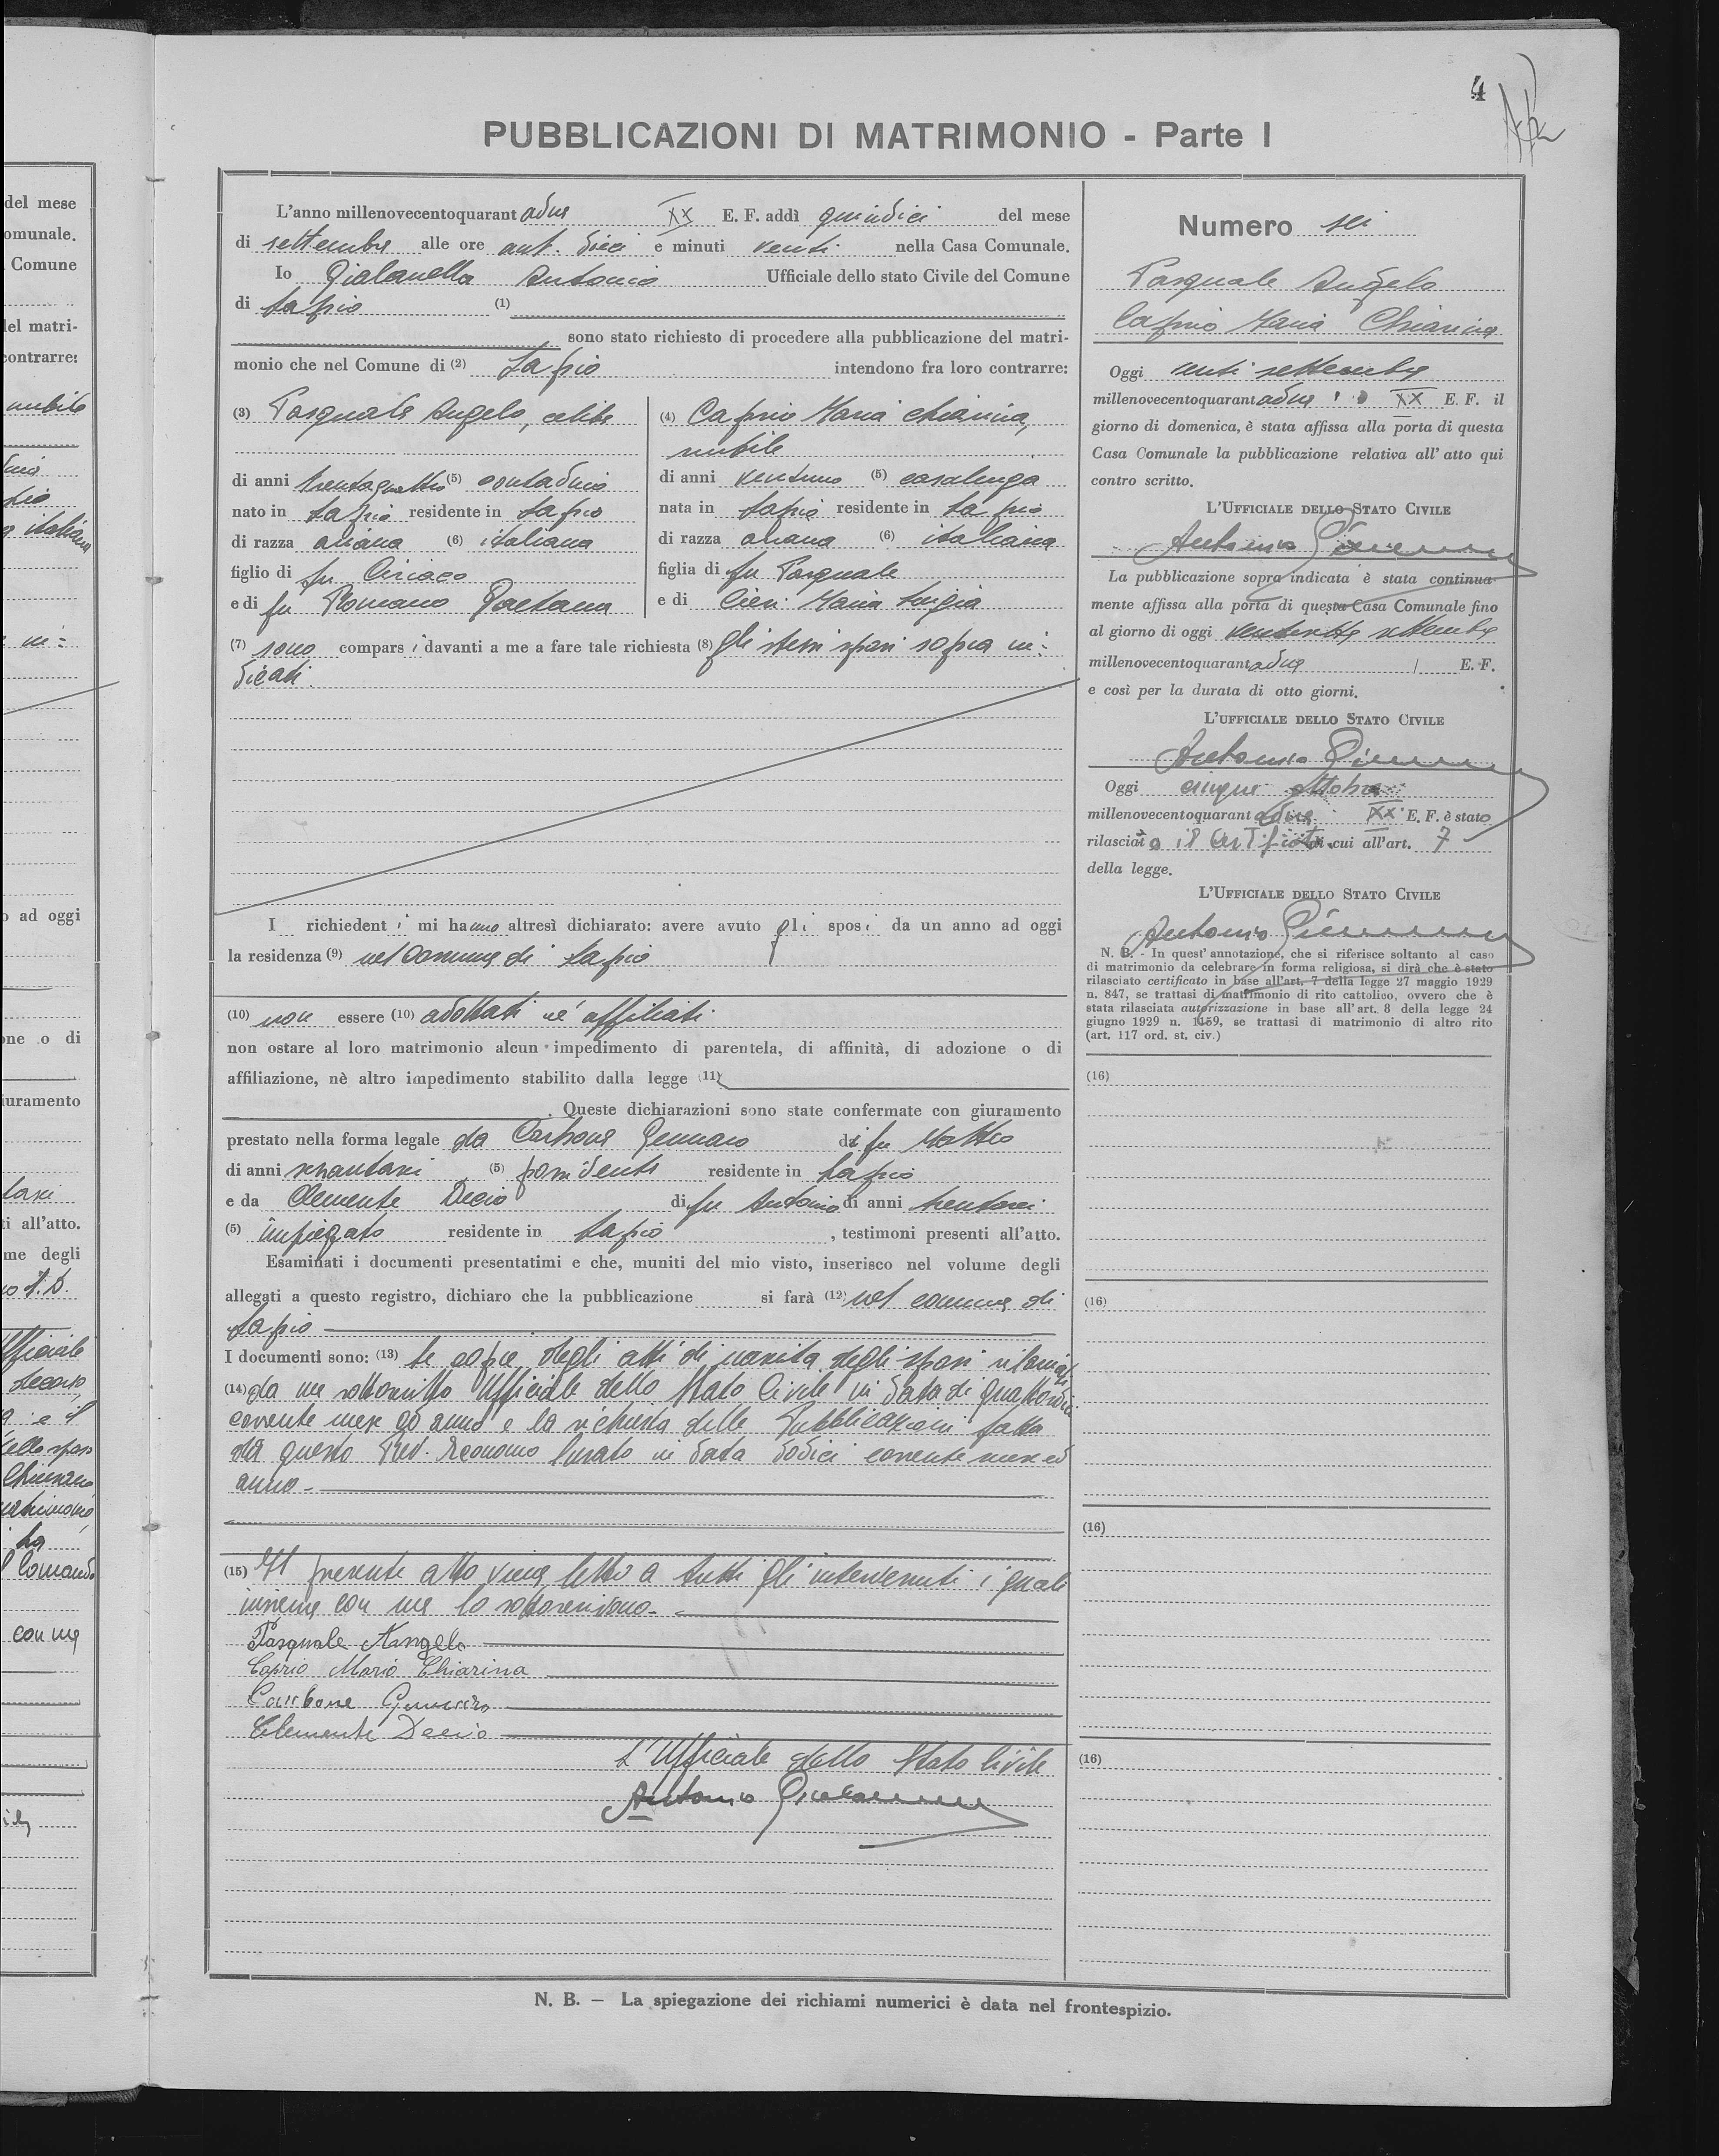 4
PUBBLICAZIONI DI MATRIMONIO - Parte I
L'anno millenovecentoquarantadue XX E. F. addì quindici del mese
di settembre alle ore ant. dieci e minuti venti nella Casa Comunale.
Io Gialanella Antonio Ufficiale dello stato Civile del Comune
di Lapio (1)
sono stato richiesto di procedere alla pubblicazione del matri-
monio che nel Comune di (2) Lapio intendono fra loro contrarre:
(3) Pasquale Angelo, celibe
di anni trentaquattro (5) contadino
nato in Lapio residente in Lapio
di razza ariana (6) italiana
figlio di fu Ciriaco
e di fu Romano Gaetana
(4) Caprio Maria Chiarina,
nubile
di anni ventuno (5) casalenga
nata in Lapio residente in Lapio
di razza ariana (6) italiana
figlia di fu Pasquale
e di Cieri Maria Luigia
(7) sono comparsi davanti a me a fare tale richiesta (8) gli stessi sposi sopra in:
dicati.
I richiedenti mi hanno altresì dichiarato: avere avuto gli sposi da un anno ad oggi
la residenza (9) nel Comune di Lapio
(10) non essere (10) adottati nè affiliati
non ostare al loro matrimonio alcun impedimento di parentela, di affinità, di adozione o di
affiliazione, nè altro impedimento stabilito dalla legge (11)
. Queste dichiarazioni sono state confermate con giuramento
prestato nella forma legale da Carbone Gennaro di fu Matteo
di anni sessantasei (5) possidente residente in Lapio
e da Clemente Decio di fu Antonio di anni trentasei
(5) impiegato residente in Lapio , testimoni presenti all'atto.
Esaminati i documenti presentatimi e che, muniti del mio visto, inserisco nel volume degli
allegati a questo registro, dichiaro che la pubblicazione si farà (12) nel comune di
Lapio
I documenti sono: (13) le copie degli atti di nascita degli sposi rilasciati
(14) da me sottoscritto Ufficiale dello Stato Civile in data di quattordici
corrente mese ed anno e la richiesta delle Pubblicazioni fatta
da questo Rev. Economo Curato in data dodici corrente mese ed
anno-
(15) Il presente atto viene letto a tutti gli intervenuti i quali
insieme con me lo sottoscrivono-
Pasquale Angelo
Caprio Maria Chiarina
Carbone Gennaro
Clemente Decio
L'Ufficiale dello Stato Civile
Antonio Gialanella
N. B. — La spiegazione dei richiami numerici è data nel frontespizio.
Numero sei
Pasquale Angelo
Caprio Maria Chiarina
Oggi venti settembre
millenovecentoquarantadue XX E. F. il
giorno di domenica, è stata affissa alla porta di questa
Casa Comunale la pubblicazione relativa all' atto qui
contro scritto.
L'UFFICIALE DELLO STATO CIVILE
Antonio
La pubblicazione sopra indicata è stata continua-
mente affissa alla porta di questa Casa Comunale fino
al giorno di oggi ventisette settembre
millenovecentoquarantadue E. F.
e così per la durata di otto giorni.
L'UFFICIALE DELLO STATO CIVILE
Antonio
Oggi cinque ottobre
millenovecentoquarantadue XX E. F. è stato
rilasciato il certificato di cui all'art. 7
della legge.
L'UFFICIALE DELLO STATO CIVILE
Antonio
N. B. - In quest' annotazione, che si riferisce soltanto al caso
di matrimonio da celebrare in forma religiosa, si dirà che è stato
rilasciato certificato in base all'art. 7 della legge 27 maggio 1929
n. 847, se trattasi di matrimonio di rito cattolico, ovvero che è
stata rilasciata autorizzazione in base all'art. 8 della legge 24
giugno 1929 n. 1159, se trattasi di matrimonio di altro rito
(art. 117 ord. st. civ.)
(16)
(16)
(16)
(16)